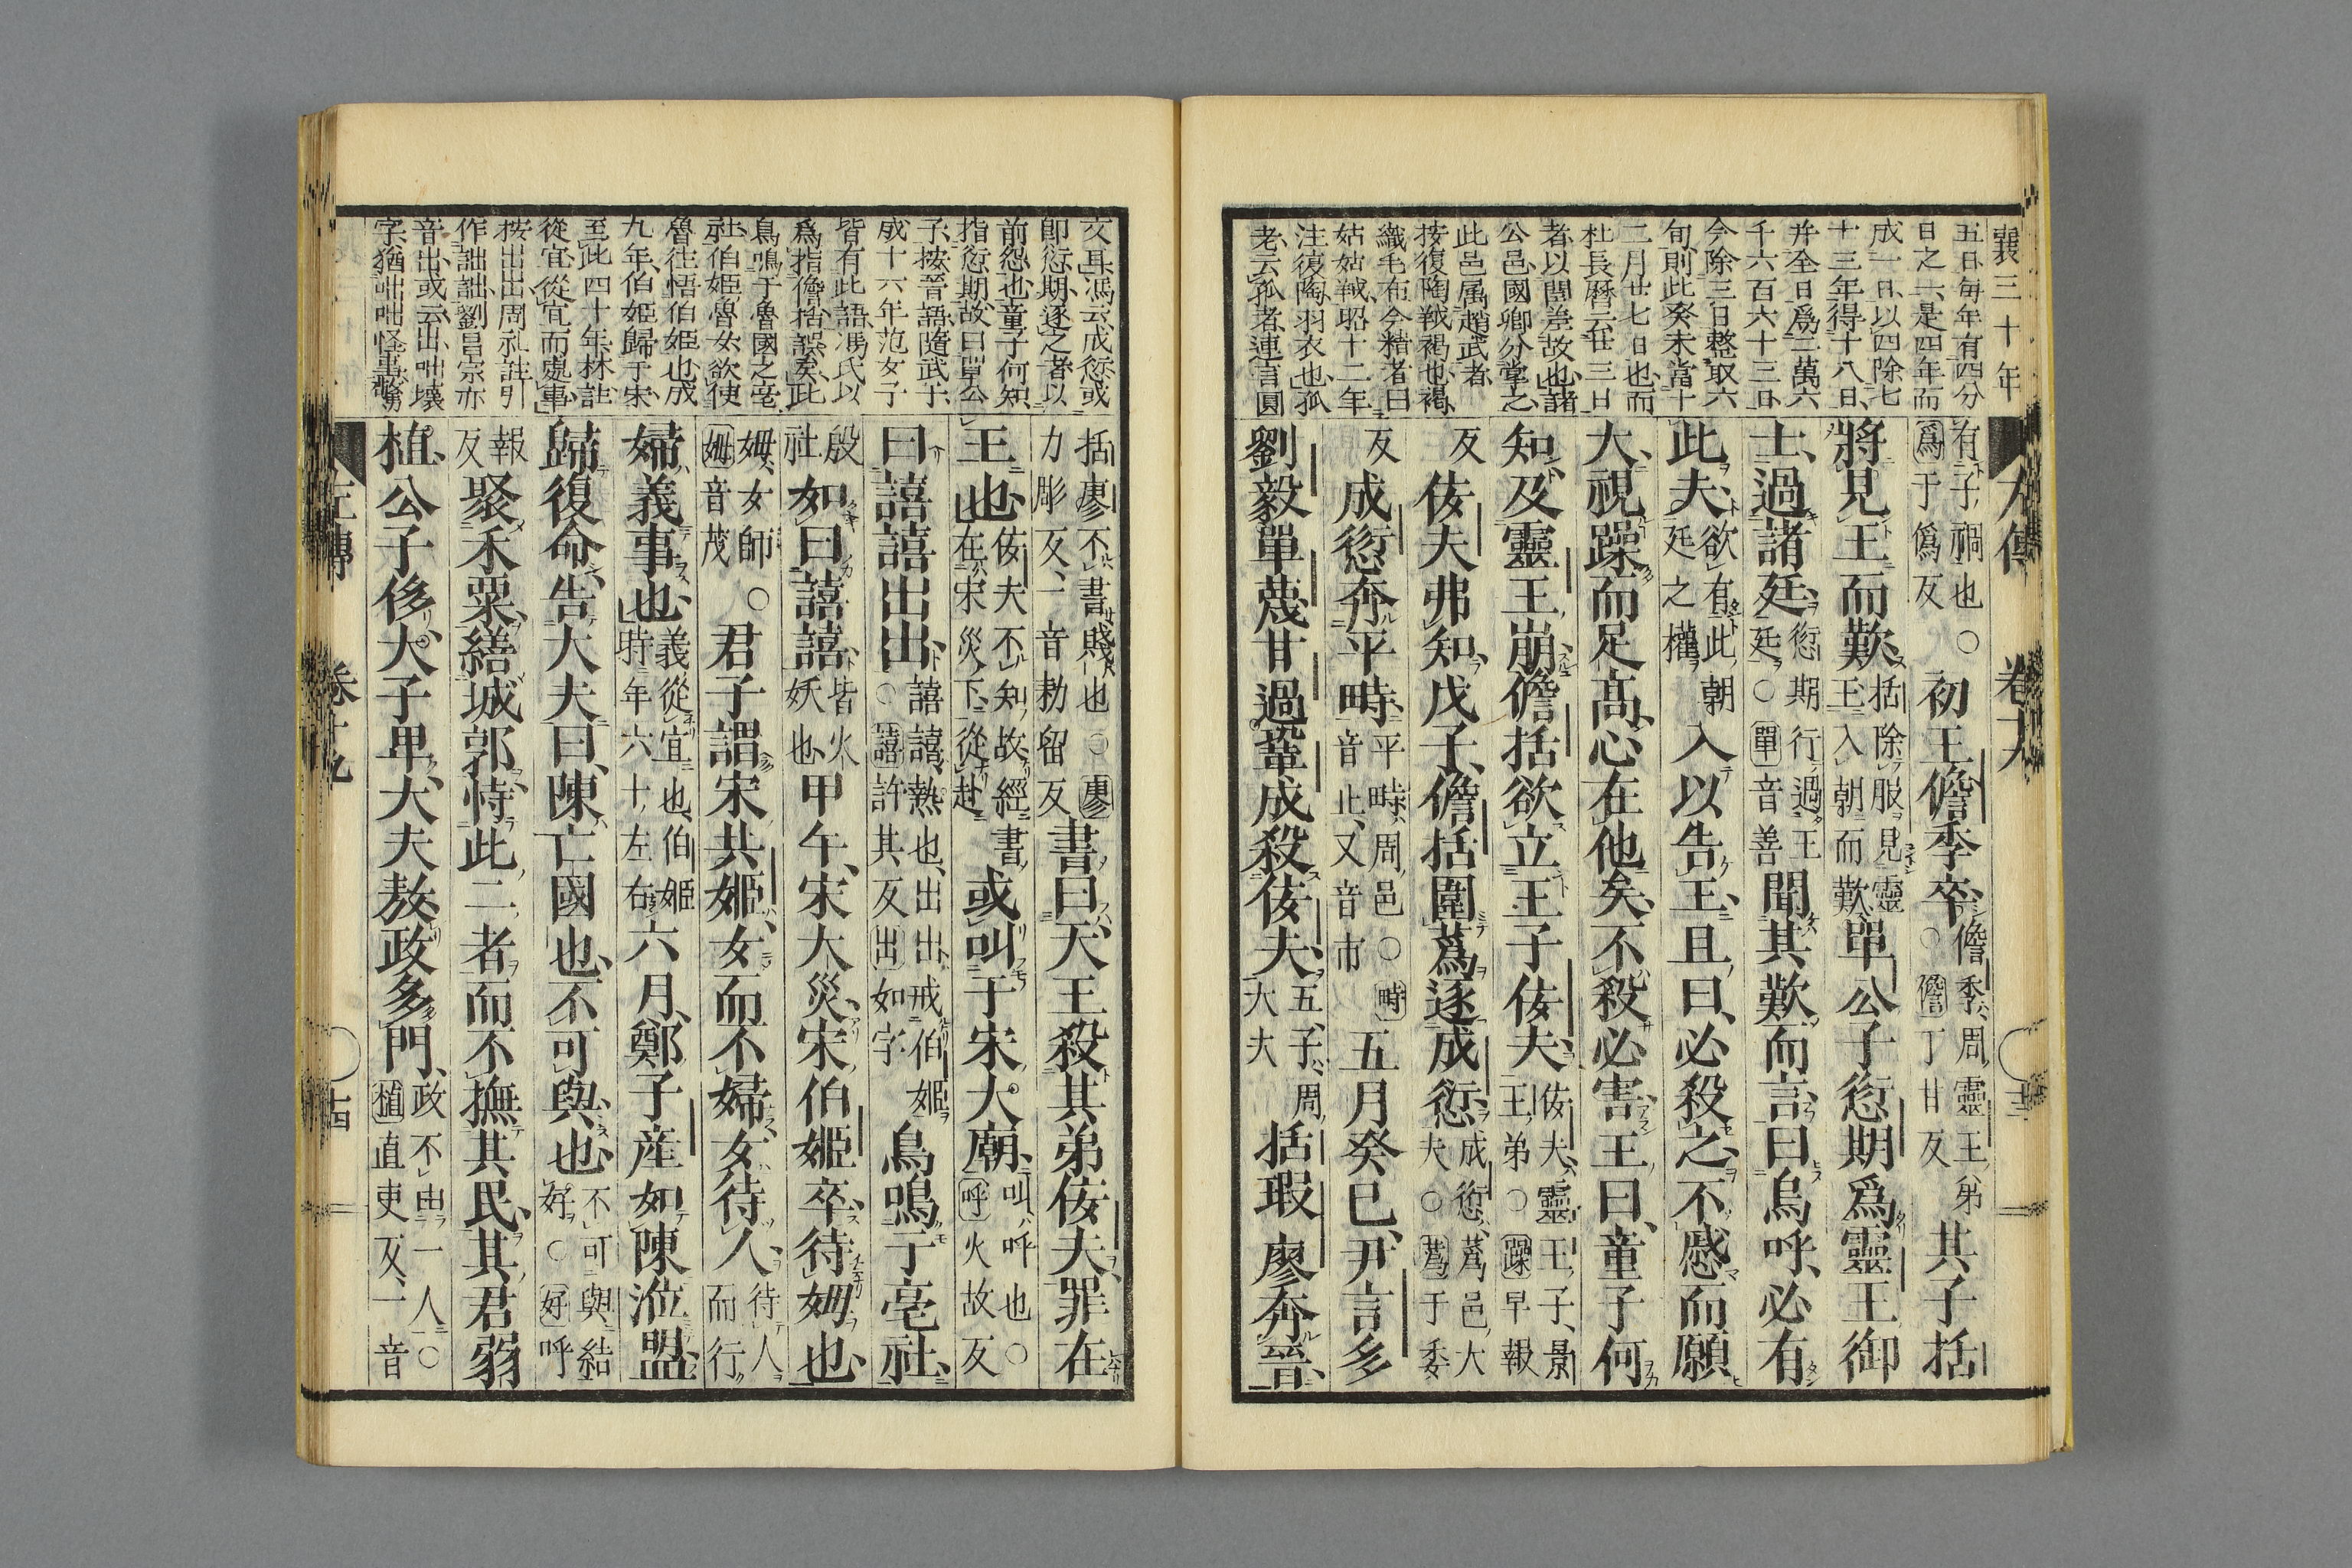 襄三十年
五日毎年有四分
日之一是四年而
成一日以四除七
十三年得十八日
并全日爲二萬六
千六百六十三日
今除三日整取六
旬則此癸未當十
二月廿七日也而
杜長暦云在三日
者以閏差故也諸
公邑國卿分掌之
此邑属趙武者
按復陶韍褐也褐
織毛布今精者曰
姑姑絨昭十二年
注復陶羽衣也孤
老云孤者連言圓
左傳 卷十九
有子禍也○爲于僞反 初王儋季卒儋季周靈王弟○儋丁甘反其子括
將見王而歎括除服見靈王入朝而歎單公子愆期爲靈王御
士過諸廷愆期行過王廷○單音善聞其歎而言曰烏呼必有
此夫欲有此朝廷之權入以告王且曰必殺之不慼而願
大視躁而足高心在他矣不殺必害王曰童子何
知及靈王崩儋括欲立王子佞夫佞夫靈王子景王弟○躁早報
反佞夫弗知戊子儋括圍蒍逐成愆成愆蒍邑大夫○蒍于委
反成愆奔平畤平畤周邑○畤音止又音市五月癸巳尹言多
劉毅單蔑甘過鞏成殺佞夫五子周大夫括瑕廖奔晉
文耳馮云成愆或
即愆期逐之者以
前怨也童子何知
指愆期故曰單公
子按晉語隨武子
成十六年范文子
皆有此語馮氏以
爲指儋括誤矣此
鳥鳴于魯國之亳
社伯姫魯女欲使
魯往悟伯姫也成
九年伯姫歸于宋
至此四十年林註
從宜從宜而處事
按出出周礼註引
作詘詘劉昌宗亦
音出或云出咄壊
字猶咄咄怪事
括廖不書賤也○廖力彫反一音勑留反書曰天王殺其弟佞夫罪在
王也佞夫不知故經書在宋災下從赴或叫于宋大廟叫呼也○呼火故反
曰譆譆出出譆譆熱也出出戒伯姫○譆許其反出如字鳥鳴于亳社
殷社如曰譆譆皆火妖也甲午宋大災宋伯姫卒待姆也
姆女師姆音茂○君子謂宋共姫女而不婦女待人待人而行
婦義事也義從宜也伯姫時年六十左右六月鄭子産如陳涖盟
歸復命告大夫曰陳亡國也不可與也不可與結好○好呼
報反聚禾粟繕城郭恃此二者而不撫其民其君弱
植公子侈大子卑大夫敖政多門政不由一人○植直吏反一音
左傳 卷十九 十四